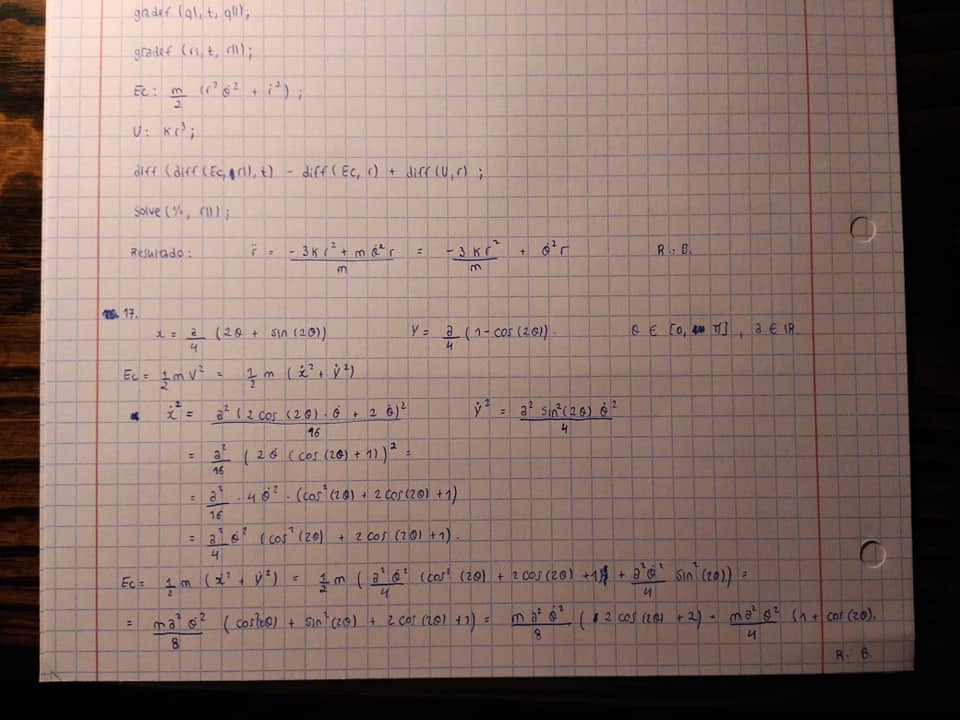 gradef (q1, t, q11);
gradef (r1, t, r11);
Ec: m/2 (r² θ̇² + ṙ²);
U: Kr³;
diff (diff (Ec, r1), t) - diff (Ec, r) + diff (U, r);
solve (%, r11);
Resultado: r̈ = (-3Kr² + mθ̇²r)/m = -3Kr²/m + θ̇²r R.: B.
17.
x = a/4 (2θ + sin(2θ)) y = a/4 (1 - cos(2θ)). θ ∈ [0, π], a ∈ IR.
Ec = 1/2 m v² = 1/2 m (ẋ² + ẏ²)
ẋ² = a² (2 cos(2θ) · θ̇ + 2 θ̇)²/16 ẏ² = a² sin²(2θ) θ̇²/4
= a²/16 (2θ̇ (cos(2θ) + 1))² =
= a²/16 · 4θ̇² · (cos²(2θ) + 2cos(2θ) + 1)
= a²/4 θ̇² (cos²(2θ) + 2 cos(2θ) + 1).
Ec = 1/2 m (ẋ² + ẏ²) = 1/2 m (a² θ̇²/4 (cos²(2θ) + 2cos(2θ) + 1) + a² θ̇²/4 sin²(2θ)) =
= m a² θ̇²/8 (cos²(2θ) + sin²(2θ) + 2 cos(2θ) + 1) = m a² θ̇²/8 (2 cos(2θ) + 2) = m a² θ̇²/4 (1 + cos(2θ).
R.: B.